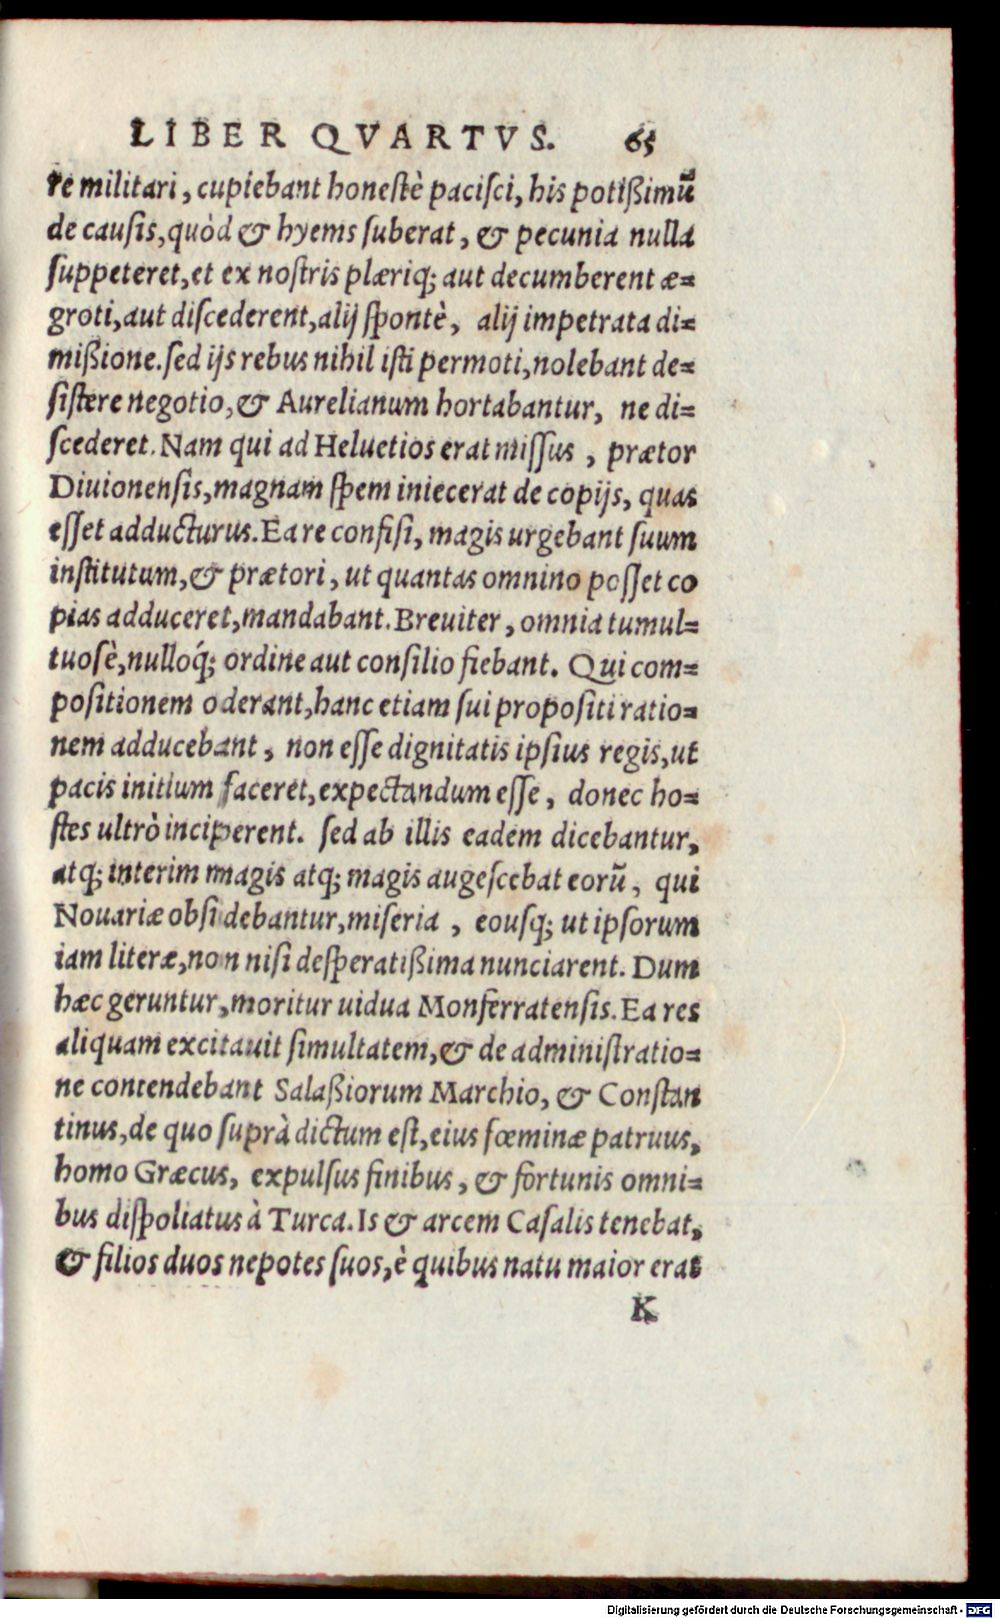 LIBER QVARTVS. 65
re militari, cupiebant honestè pacisci, his potißimũ
de causis, quòd & hyems suberat, & pecunia nulla
suppeteret, et ex nostris plæriq; aut decumberent æ=
groti, aut discederent, alij spontè, alij impetrata di=
mißione. sed ijs rebus nihil isti permoti, nolebant de=
sistere negotio, & Aurelianum hortabantur, ne di=
scederet. Nam qui ad Heluetios erat missus, prætor
Diuionensis, magnam spem iniecerat de copijs, quas
esset adducturus. Ea re confisi, magis urgebant suum
institutum, & prætori, ut quantas omnino posset co
pias adduceret, mandabant. Breuiter, omnia tumul=
tuosè, nulloq́; ordine aut consilio fiebant. Qui com=
positionem oderant, hanc etiam sui propositi ratio=
nem adducebant, non esse dignitatis ipsius regis, ut
pacis initium faceret, expectandum esse, donec ho=
stes ultrò inciperent. sed ab illis eadem dicebantur,
atq; interim magis atq; magis augescebat eorũ, qui
Nouariæ obsidebantur, miseria, eousq; ut ipsorum
iam literæ, non nisi desperatißima nunciarent. Dum
hæc geruntur, moritur uidua Monferratensis. Ea res
aliquam excitauit simultatem, & de administratio=
ne contendebant Salaßiorum Marchio, & Constan
tinus, de quo suprà dictum est, eius fœminæ patruus,
homo Græcus, expulsus finibus, & fortunis omni=
bus dispoliatus à Turca. Is & arcem Casalis tenebat,
& filios duos nepotes suos, è quibus natu maior erat
K
Digitalisierung gefördert durch die Deutsche Forschungsgemeinschaft - DFG